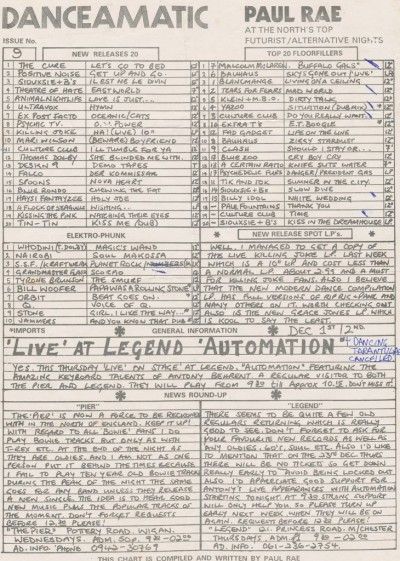 DANCEAMATIC PAUL RAE
AT THE NORTH'S TOP
FUTURIST/ALTERNATIVE NIGHTS
ISSUE No. 9
NEW RELEASES 20
1 THE CURE LET'S GO TO BED
2 POSITIVE NOISE GET UP AND GO. 12
3 SIOUXSIE+B'S IL EST NE DIVIN ENFANT
4 THEATRE OF HATE EASTWORLD
5 ANIMAL NIGHTLIFE LOVE IS JUST...
6 ULTRAVOX HYMN
7 EX POST FACTO OCEANIC/CATY
8 PSYCHIC TV. O.V. POWER
9 KILLING JOKE HA! (LIVE) 10"
10 MARI WILSON (BEWARE) BOYFRIEND
11 CULTURE CLUB I'LL TUMBLE FOR YA
12 THOMAS DOLBY SHE BLINDED ME WITH..
13 DESIGN 9 DEMO TAPES
14 FALCO DER KOMMISSAR
15 SPOONS NOVA HEART
16 BLUE RONDO CHANGING THE FAT
17 HAYSI FANTAYZEE HOLY JOE
18 A FLOCK OF SEAGULLS WISHING...
19 KISSING THE PINK WATCHING THEIR EYES
20 TIN-TIN KISS ME (DUB)
TOP 20 FLOORFILLERS
1 MALCOLM McLAREN. BUFFALO GALS
2 BAUHAUS SKY'S GONE OUT/LIVE LP
3 BLANCMANGE LIVING ON A CEILING
4 TEARS FOR FEARS MAD WORLD
5 KLEIN+M.B.O. DIRTY TALK
6 YAZOO SITUATION (DUB MIX)
7 CULTURE CLUB DO YOU REALLY WANT
8 EXTRA T'S E.T. BOOGIE
9 FAD GADGET LIFE ON THE LINE
10 BAUHAUS ZIGGY STARDUST
11 CLASH SHOULD I STAY OR...
12 BLUE ZOO CRY BOY CRY
13 A CERTAIN RATIO KNIFE SLITS WATER
14 PSYCHEDELIC FURS DANGER/PRESIDENT GAS LP
15 TIK AND TOK SUMMER IN THE CITY
16 SIOUXSIE+B'S SLOW DIVE
17 BILLY IDOL WHITE WEDDING
18 PALE FOUNTAINS THANK YOU
19 CULTURE CLUB TIME
20 SIOUXSIE+B'S KISS IN THE DREAMHOUSE LP
ELEKTRO-PHUNK
1 WHODINI (T.DOLBY) MAGIC'S WAND
2 NAIROBI SOUL MAKOSSA
3 S.S.F./KRAFTWERK PLANET ROCK/NUMBERS
4 GRANDMASTER FLASH SCORPIO
5 TYRONE BRUNSON THE SMURF
6 WUF TICKET
7 ORBIT BEAT GOES ON.
8 Q. VOICE OF Q.
9 STONE GIRL, I LIKE THE WAY...
AND YOU KNOW THAT DUB
*IMPORTS
NEW RELEASE SPOT LP'S.
WELL. I MANAGED TO GET A COPY OF
THE LIVE KILLING JOKE L.P. LAST WEEK
WHICH IS A 10" LP AND COST LESS THAN
A NORMAL L.P. ABOUT 2.99 AND A MUST
FOR KILLING JOKE FANS. ALSO I BELIEVE
THAT THE NEW MODERN DANCE COMPILATION
LP HAS FULL VERSIONS OF AND
MANY OTHERS ON IT. WORTH CHECKING ONE.
ALSO IS THE NEW GRACE JONES LP WHICH
IS KOOL TO SAY THE LEAST.
* GENERAL INFORMATION * DEC 1ST/2ND
'LIVE' AT LEGEND 'AUTOMATION'
DANCING
CANCELLED.
YES. THIS THURSDAY 'LIVE' ON STAGE AT LEGEND. "AUTOMATION" FEATURING THE
AMAZING KEYBOARD TALENTS OF ANTONY BEHRENT A REGULAR VISITOR TO BOTH
THE PIER AND LEGEND. THEY WILL PLAY FROM 9.30 TILL APPROX 10.15. DON'T MISS IT.
NEWS ROUND-UP
"PIER"
THE 'PIER' IS NOW A FORCE TO BE RECKONED
WITH IN THE NORTH OF ENGLAND. KEEP IT UP!
WITH REGARD TO ALL BOWIE FANS I DO
PLAY BOWIE TRACKS BUT ONLY AS WITH
T-REX ETC. AT THE END OF THE NIGHT AS
THEY ARE OLDIES, AND I AM NOT ONE
PERSON. PUT IT BEHIND THE TIMES BECAUSE
I FAIL TO PLAY TEN YEAR OLD BOWIE TRACKS
DURING THE PEAK OF THE NIGHT THE SAME
GOES FOR ANY BAND UNLESS THEY RELEASE
A NEW SINGLE. THE IDEA IS TO MERGE GOOD
NEW MUSIC PLUS THE POPULAR TRACKS OF
THE MOMENT. DON'T FORGET REQUESTS
BEFORE 12.30 PLEASE!
"THE PIER" POTTERY ROAD, WIGAN.
WEDNESDAYS. ADM. 50p. 9.30-02.00
AD. INFO. PHONE 0942-30769
"LEGEND"
THERE SEEMS TO BE QUITE A FEW OLD
REGULARS RETURNING WHICH IS REALLY
GOOD TO SEE. DON'T FORGET TO ASK FOR
YOUR FAVOURITE NEW RECORDS AS WELL AS
ANY OLDIES, 60'S, SOUL ETC. ALSO I'D LIKE
TO MENTION THAT ON THE 23RD DEC. THURS
THERE WILL BE NO TICKETS SO GET DOWN
REALLY EARLY TO AVOID BEING LOCKED OUT.
ALSO I'D APPRECIATE GOOD SUPPORT FOR
ANTONY'S LIVE APPEARANCES WITH AUTOMATION
STARTING TONIGHT AT 9.30 STRONG SUPPORT
WILL ONLY HELP YOU, SO PLEASE TURN UP
EARLY NEXT WEEK WHEN THEY WILL BE ON
AGAIN. REQUESTS BEFORE 12.30 PLEASE!
"LEGEND" 21 PRINCESS ROAD, M/CHESTER
THURSDAYS. ADM. £1 9.30-02.00
AD. INFO. 061-236-2754.
THIS CHART IS COMPILED AND WRITTEN BY PAUL RAE